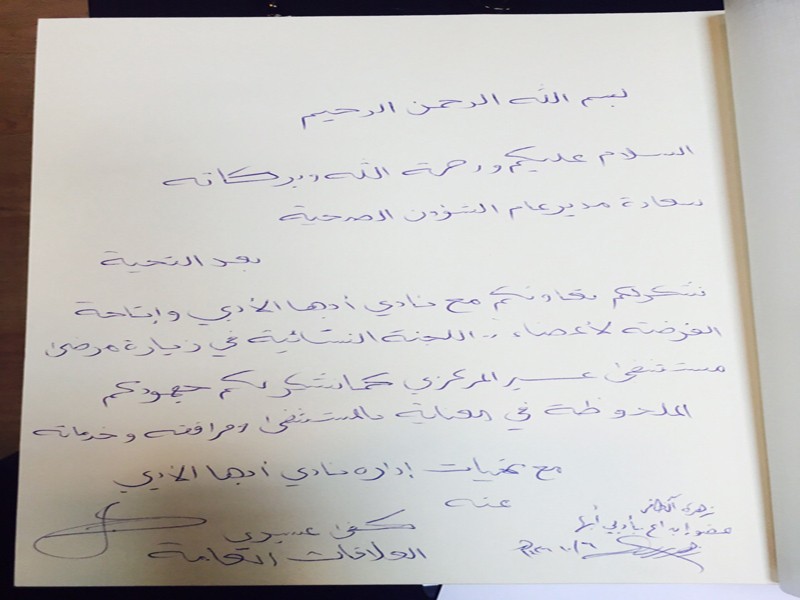 بسم الله الرحمن الرحيم
السلام عليكم ورحمة الله وبركاته
سعادة مدير عام الشؤون الصحية
بعد التحية
نشكر لكم تعاونكم مع نادي أبها الأدبي وإتاحة
الفرصة لأعضاء .. اللجنة النسائية في زيارة مرضى
مستشفى عسير المركزي كما نشكر لكم جهودكم
الملحوظة في العناية بالمستشفى ومرافقه وخدماته
مع تحيات إدارة نادي أبها الأدبي
عنه
كفى عسيري
العلاقات العامة
زهرة
عضو نادي أبها